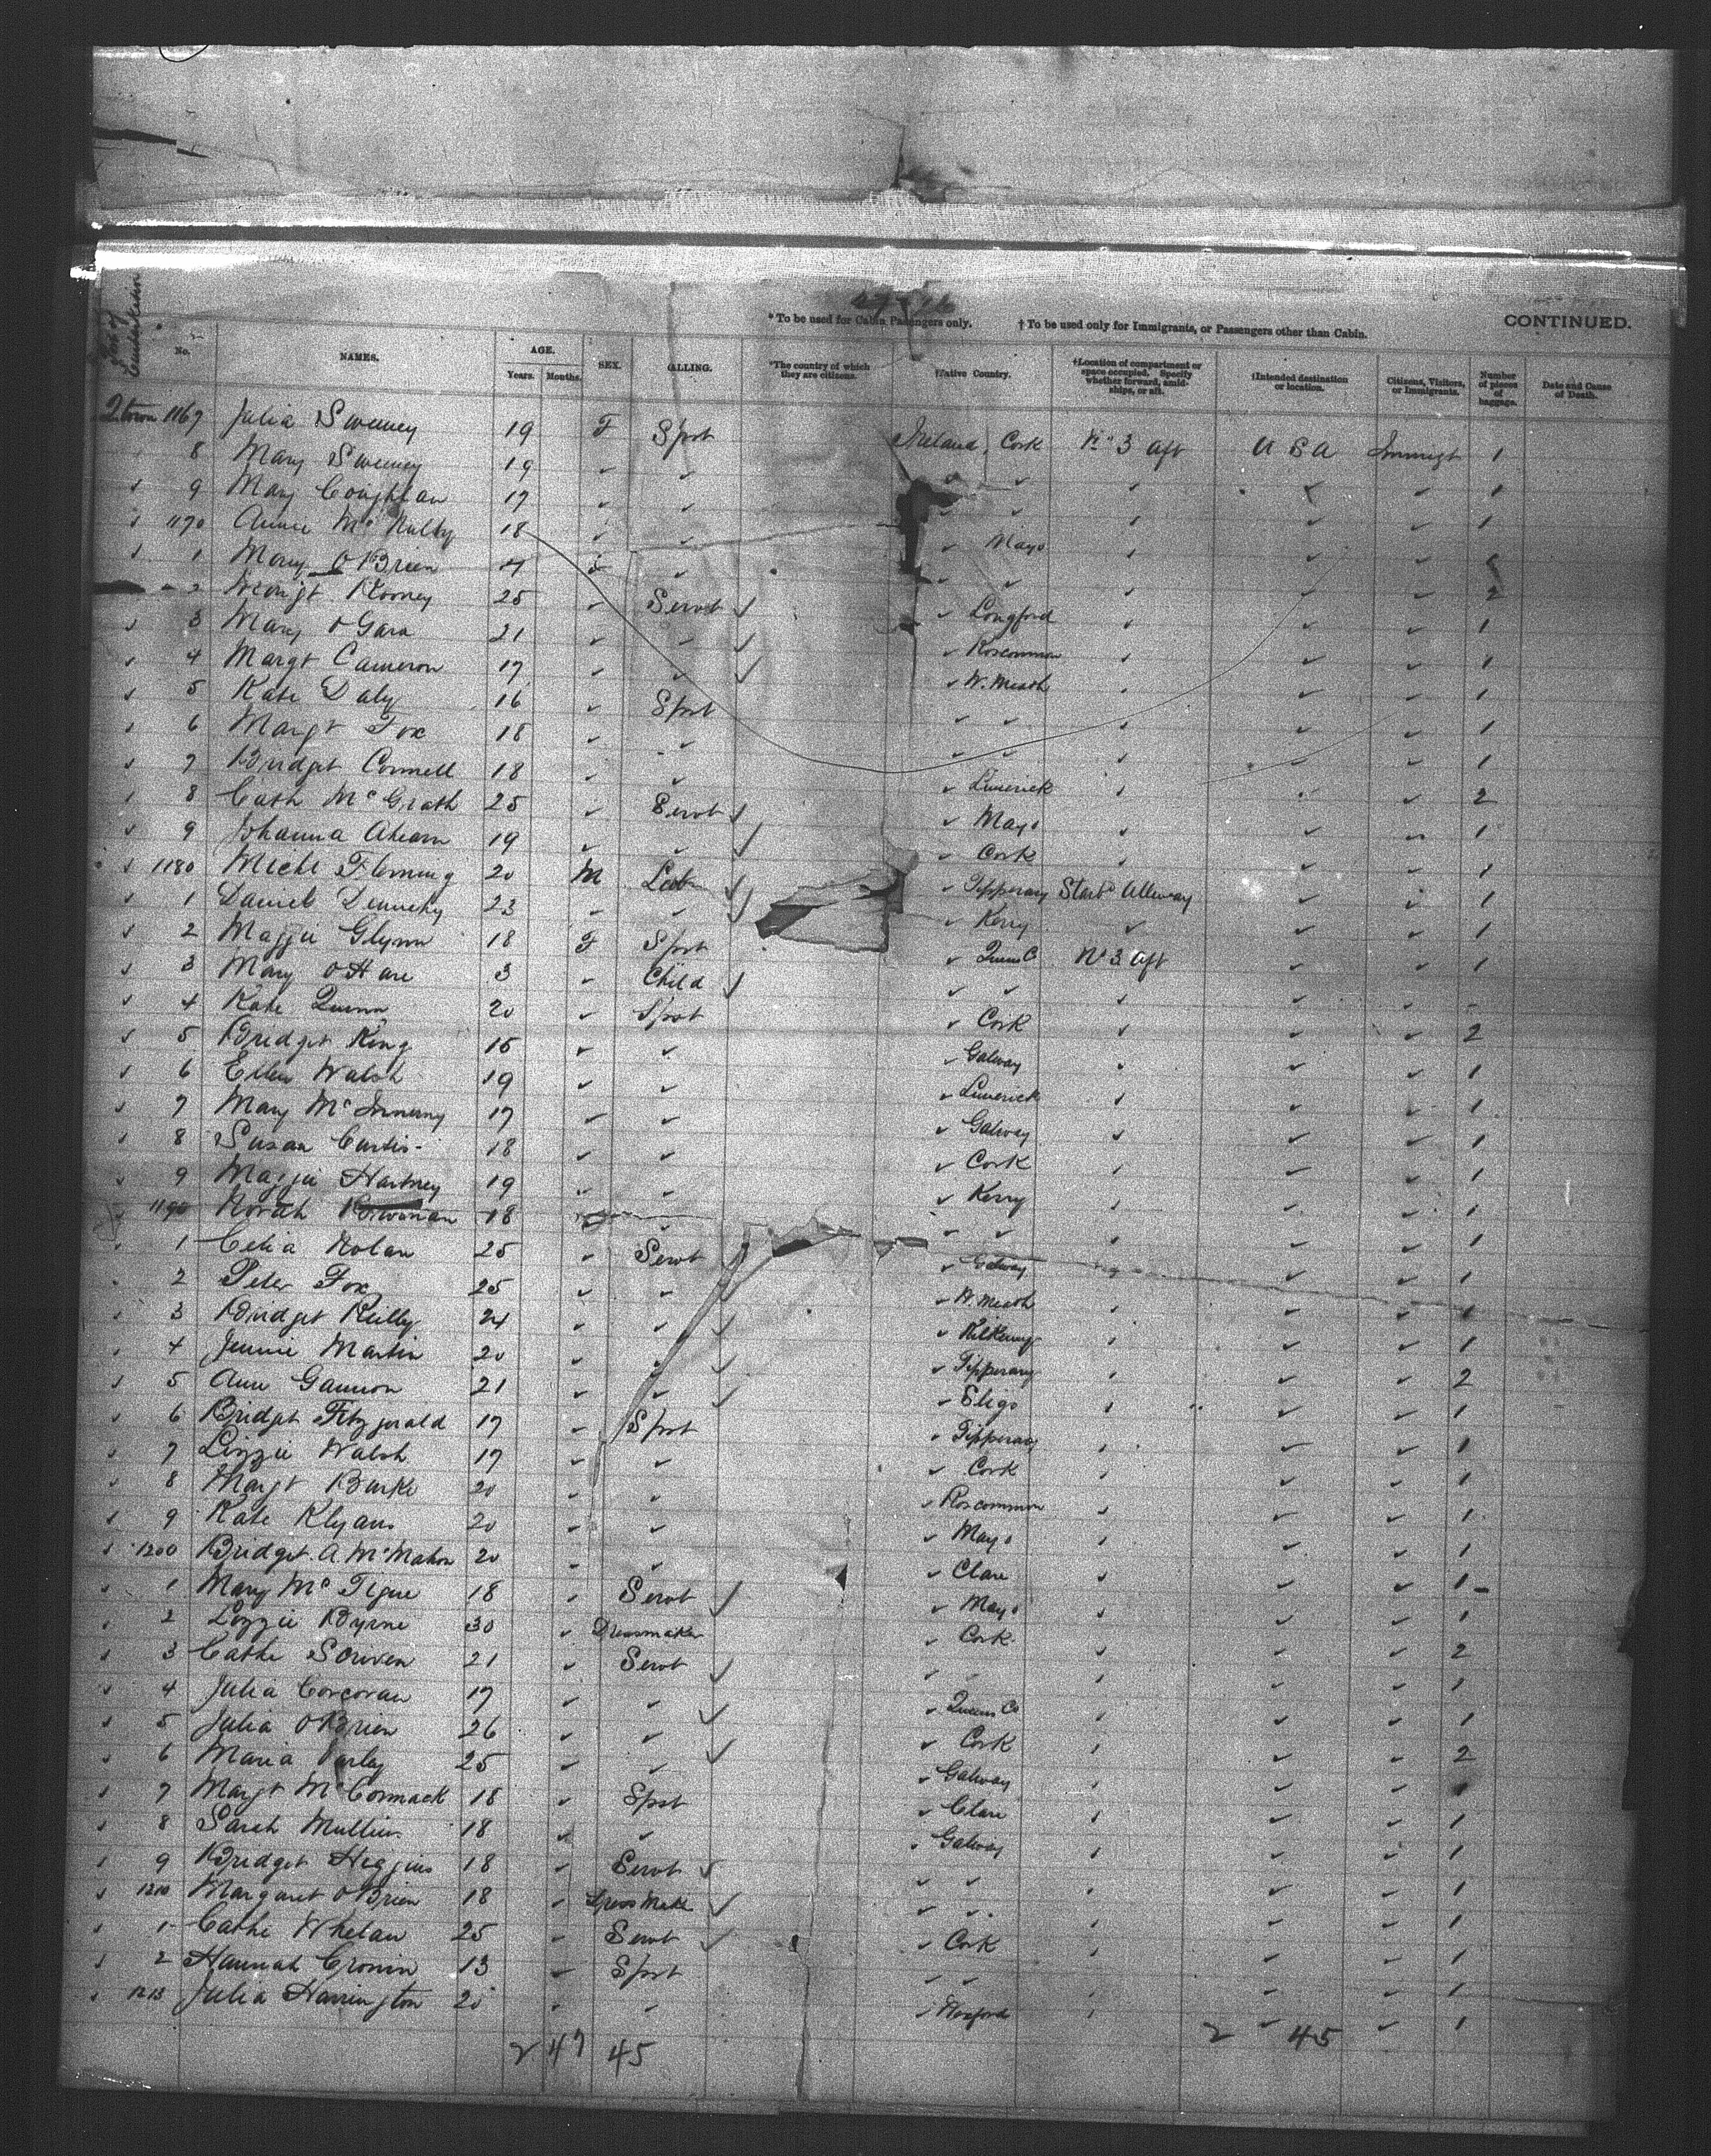 * To be used for Cabin Passengers only. † To be used only for Immigrants, or Passengers other than Cabin. CONTINUED.
No. NAMES. AGE. Years. Months. SEX. CALLING. *The country of which they are citizens. †Native Country. †Location of compartment or space occupied. Specify whether forward, amidships, or aft. †Intended destination or location. Citizens, Visitors, or Immigrants. Number of pieces of baggage. Date and Cause of Death.
Qtown 1167 Julia Sweeney 19 F Spst Ireland, Cork No 3 aft U S A Immigt 1
8 Mary Sweeney 19 ✓ ✓ ✓ ✓ ✓ ✓ ✓ 1
9 Mary Coughlan 17 ✓ ✓ ✓ ✓ ✓ ✓ ✓ 1
1170 Annie McNulty 18 ✓ ✓ ✓ Mayo ✓ ✓ ✓
1 Mary O Brien ✓ ✓ ✓ ✓ ✓ ✓ 2
2 Margt Rooney 25 ✓ Servt ✓ Longford ✓ ✓ ✓ 1
3 Mary O Gara 21 ✓ ✓ ✓ Roscommon ✓ ✓ ✓ 1
4 Margt Cameron 17 ✓ ✓ ✓ W. Meath ✓ ✓ ✓ 1
5 Kate Daly 16 ✓ Spst ✓ ✓ ✓ ✓ ✓ 1
6 Margt Fox 18 ✓ ✓ ✓ ✓ ✓ ✓ ✓ 1
7 Bridget Connell 18 ✓ ✓ ✓ Limerick ✓ ✓ ✓ 2
8 Cath McGrath 25 ✓ Servt ✓ Mayo ✓ ✓ ✓ 1
9 Johanna Ahearn 19 ✓ ✓ ✓ Cork ✓ ✓ ✓ 1
1180 Michl Fleming 20 M Labr ✓ Tipperary Starbd Alleway ✓ ✓ 1
1 Daniel Dennehy 23 ✓ ✓ ✓ Kerry ✓ ✓ ✓ 1
2 Maggie Glynn 18 F Spst ✓ Queens Co No 3 aft ✓ ✓ 1
3 Mary O Hare 3 ✓ Child ✓ ✓ ✓ ✓ ✓ -
4 Kate Quinn 20 ✓ Spst ✓ Cork ✓ ✓ ✓ 2
5 Bridget King 15 ✓ ✓ ✓ Galway ✓ ✓ ✓ 1
6 Ellen Walsh 19 ✓ ✓ ✓ Limerick ✓ ✓ ✓ 1
7 Mary McInnerny 17 ✓ ✓ ✓ Galway ✓ ✓ ✓ 1
8 Susan Curtis 18 ✓ ✓ ✓ Cork ✓ ✓ ✓ 1
9 Maggie Hartney 19 ✓ ✓ ✓ Kerry ✓ ✓ ✓ 1
1190 Norah 18 ✓ ✓ ✓ ✓ ✓ ✓ 1
1 Celia Nolan 25 ✓ Servt ✓ Galway ✓ ✓ 1
2 Peter Fox 25 ✓ ✓ ✓ W. Meath ✓ ✓ ✓ 1
3 Bridget Reilly 24 ✓ ✓ ✓ Kilkenny ✓ ✓ ✓ 1
4 Jennie Martin 20 ✓ ✓ ✓ Tipperary ✓ ✓ ✓ 2
5 Ann Gannon 21 ✓ ✓ ✓ Sligo ✓ ✓ ✓ 1
6 Bridget Fitzgerald 17 ✓ Spst ✓ Tipperary ✓ ✓ ✓ 1
7 Lizzie Walsh 17 ✓ ✓ ✓ Cork ✓ ✓ ✓ 1
8 Margt Burke 20 ✓ ✓ ✓ Roscommon ✓ ✓ ✓ 1
9 Kate 20 ✓ ✓ ✓ Mayo ✓ ✓ ✓ 1
1200 Bridget A McMahon 20 ✓ ✓ ✓ Clare ✓ ✓ ✓ 1
1 Mary McTigue 18 ✓ Servt ✓ Mayo ✓ ✓ ✓ 1
2 Lizzie Byrne 30 ✓ Dressmaker ✓ Cork ✓ ✓ ✓ 2
3 Cathe Scriven 21 ✓ Servt ✓ ✓ ✓ ✓ ✓ 1
4 Julia Corcoran 17 ✓ ✓ ✓ Queens Co ✓ ✓ ✓ 1
5 Julia O Brien 26 ✓ ✓ ✓ Cork ✓ ✓ ✓ 2
6 Maria 25 ✓ ✓ ✓ Galway ✓ ✓ ✓ 1
7 Margt McCormack 18 ✓ Spst ✓ Clare ✓ ✓ ✓ 1
8 Sarah Mullin 18 ✓ ✓ ✓ Galway ✓ ✓ ✓ 1
9 Bridget Higgins 18 ✓ Servt ✓ ✓ ✓ ✓ ✓ 1
1210 Margaret O Brien 18 ✓ Dress Maker ✓ ✓ ✓ ✓ ✓ 1
1 Cathe Whelan 25 ✓ Servt ✓ Cork ✓ ✓ ✓ 1
2 Hannah Cronin 13 ✓ Spst ✓ ✓ ✓ ✓ ✓ 1
1213 Julia Harrington 20 ✓ ✓ ✓ Wexford ✓ ✓ ✓ 1
2 47 45 2 45